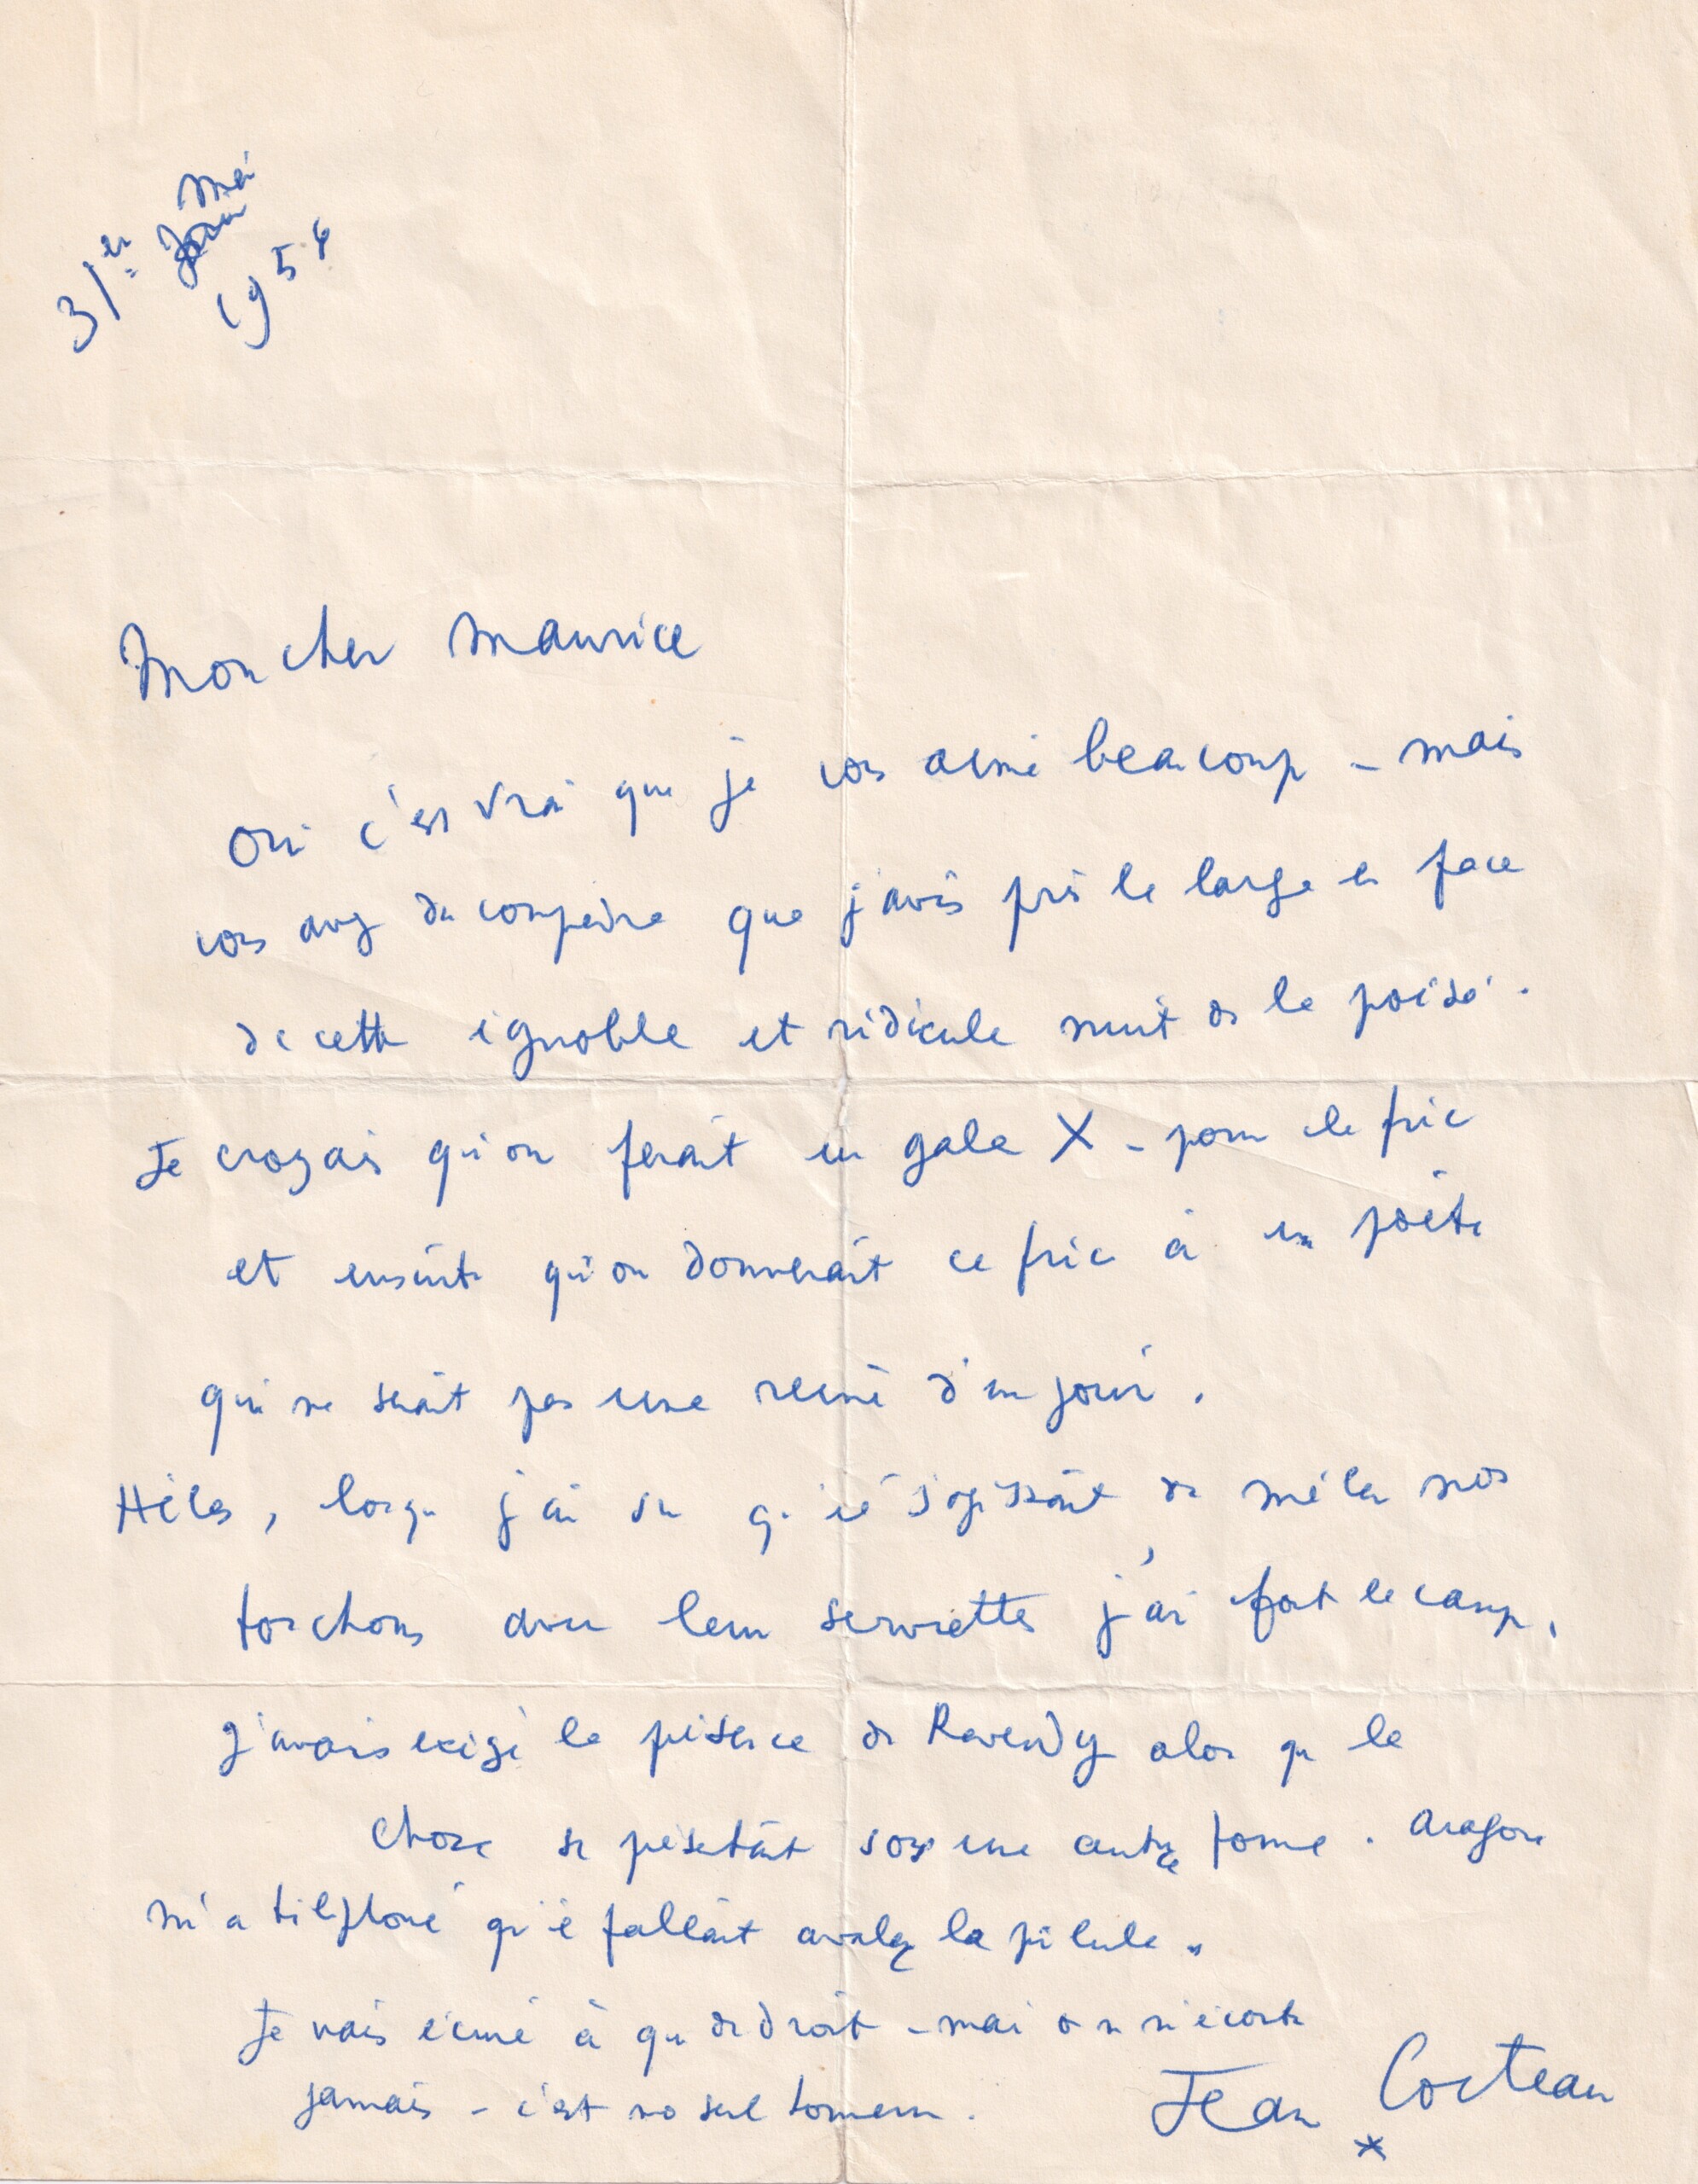 31 Mai
1954
Mon cher Maurice
Oui c'est vrai que je vous aime beaucoup – mais
vous avez du comprendre que j'avais pris le large en face
de cette ignoble et ridicule nuit de la poésie.
Je croyais qu'on ferait un gala X – pour le fric
et ensuite qu'on donnerait ce fric à un poète
qui ne serait pas une reine d'un jour.
Hélas, lorsque j'ai su qu'il s'agissait de mêler nos
torchons avec leurs serviettes j'ai fout le camp.
J'avais exigé la présence de Reverdy alors que la
chose se présentait sous une autre forme. Aragon
m'a téléphoné qu'il fallait avaler la pilule.
Je vais écrire à qui de droit – mais on n'écoute
jamais – c'est seul
Jean Cocteau
*